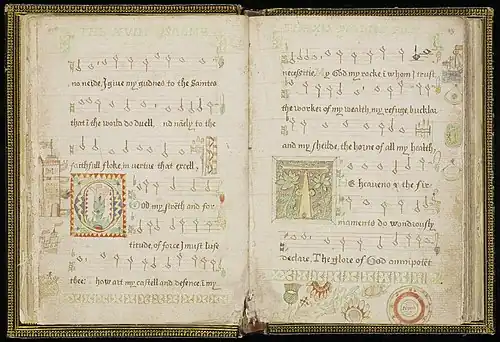 no neide, I give my gudnes to the Saintes
that I the world do duell, nd naely to the
faithfull floke, in vertue that excell,
od my streth and for
titude, of force I must luse
thee: how art my castell and defence, I my
necessitie. y God my rocke i whom I trust,
the worker of my wealth, my refuge, buckler
and my sheilde, the horne of all my health,
e heavens & the fir
mament do wondrously
declare, The glore of God omnipotet